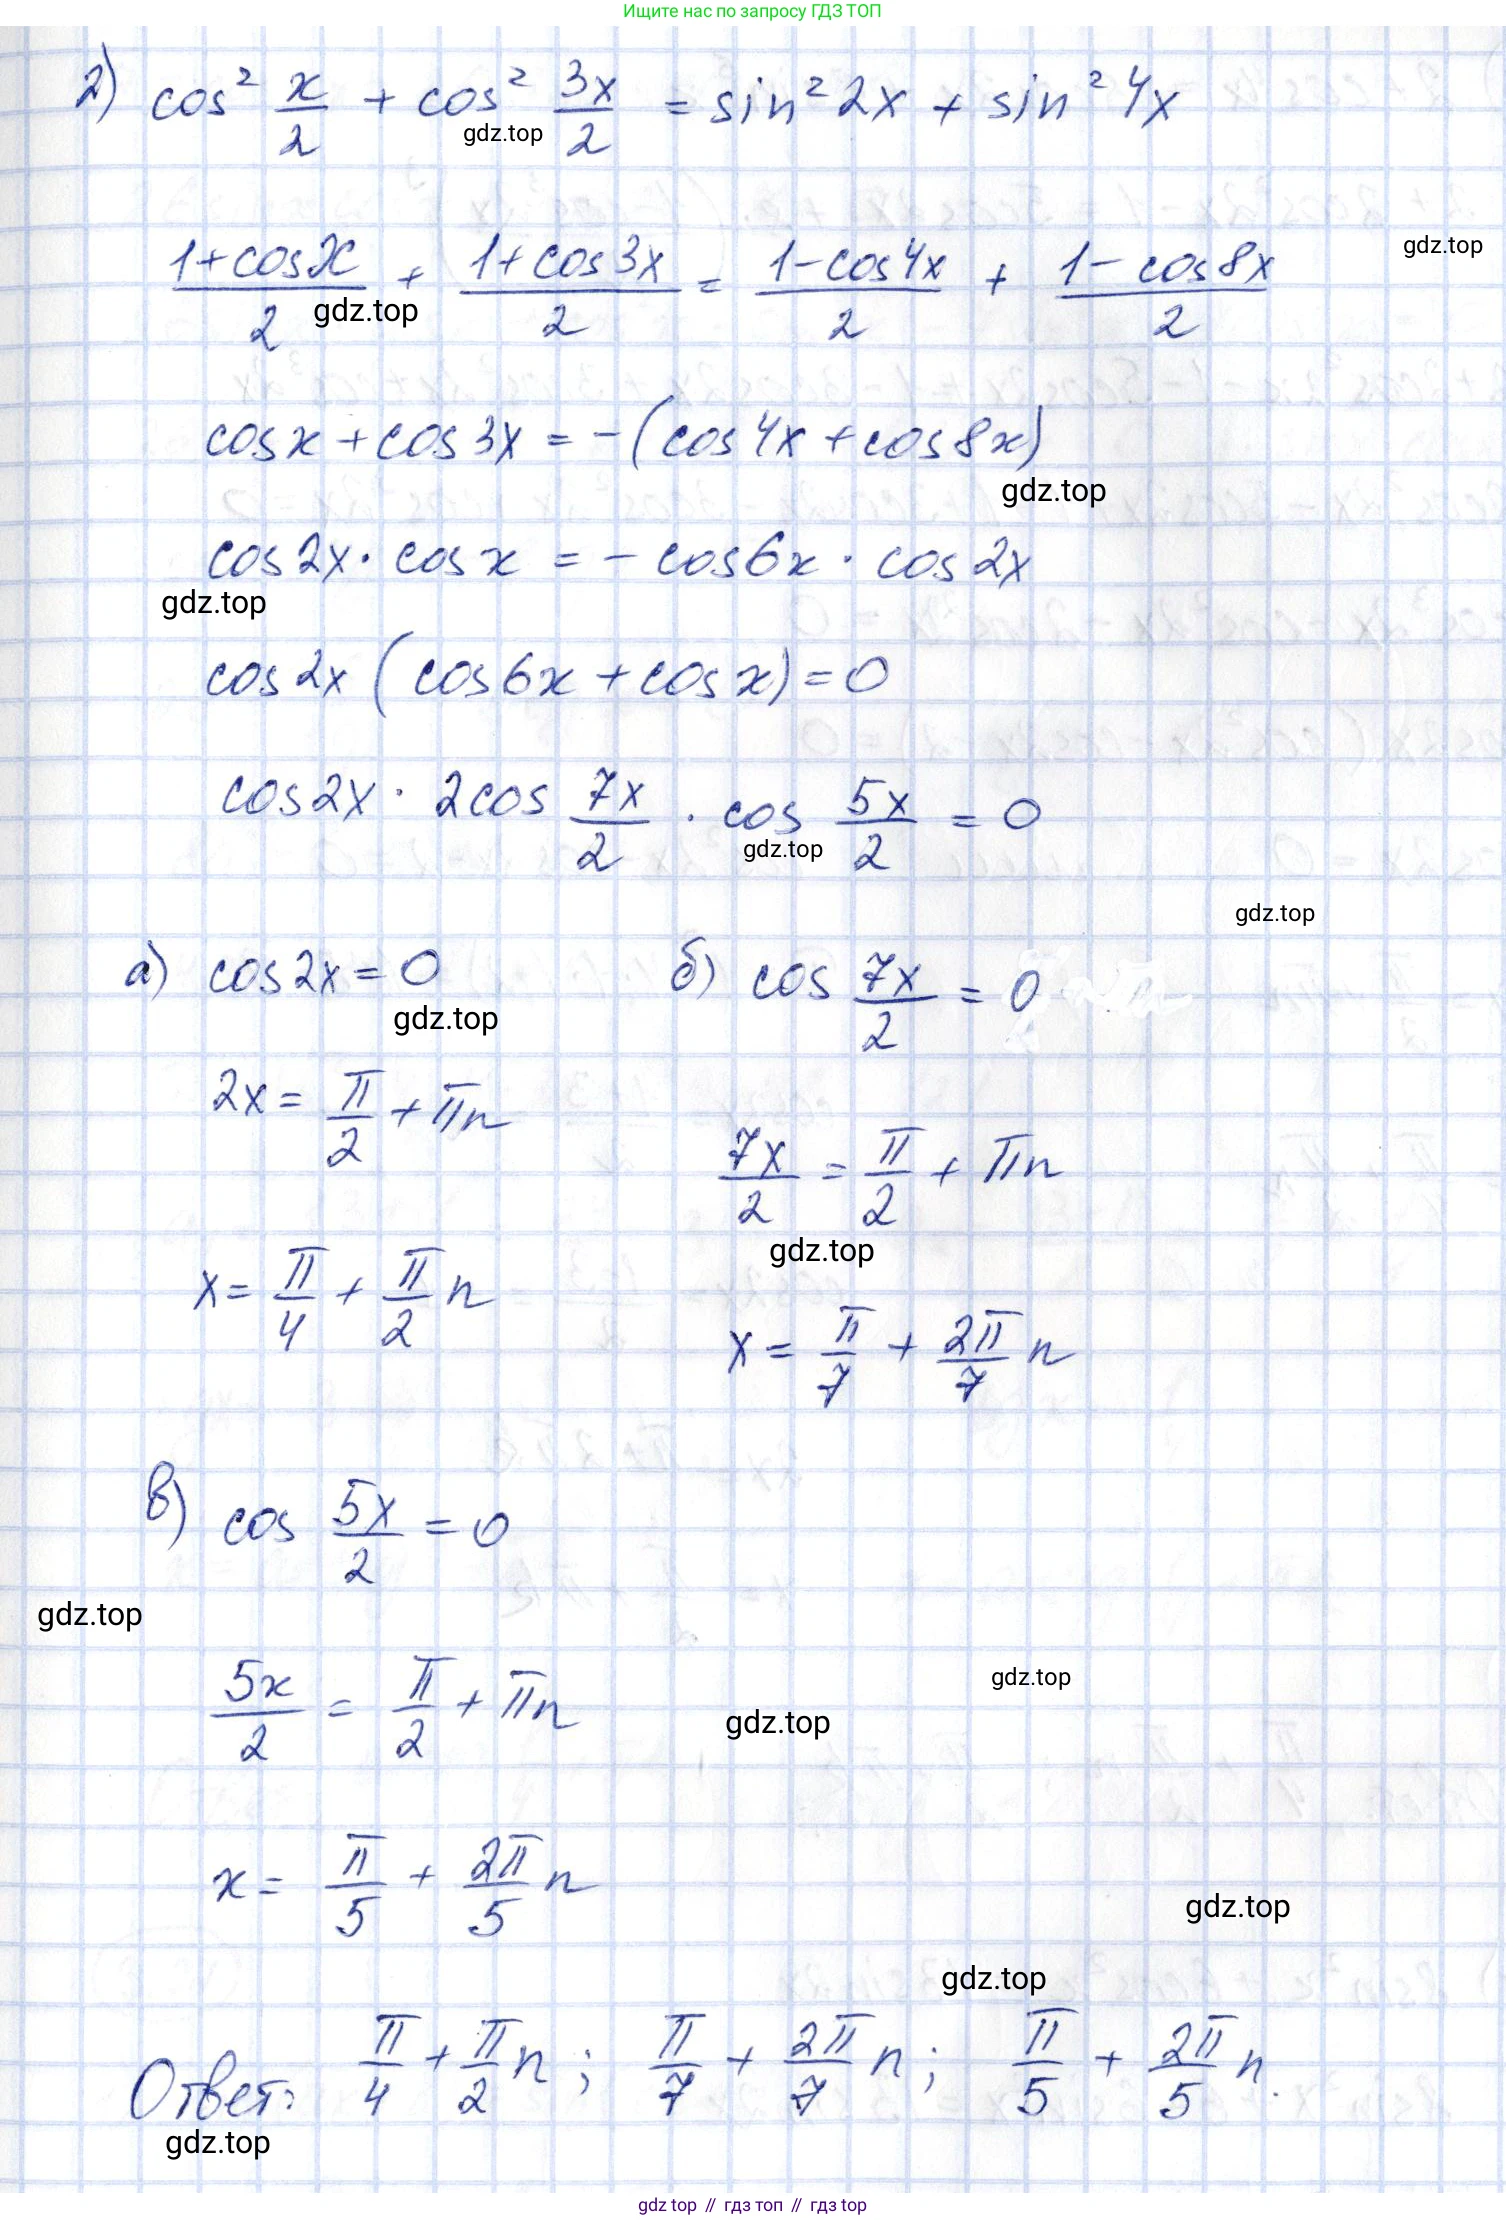 Ищите нас по запросу ГДЗ ТОП
2) cos² x/2 + cos² 3x/2 = sin² 2x + sin² 4x
gdz.top
(1+cos x)/2 + (1+cos 3x)/2 = (1-cos 4x)/2 + (1-cos 8x)/2
gdz.top
gdz.top
cos x + cos 3x = -(cos 4x + cos 8x)
gdz.top
cos 2x · cos x = - cos 6x · cos 2x
gdz.top
cos 2x (cos 6x + cos x) = 0
cos 2x · 2cos 7x/2 · cos 5x/2 = 0
gdz.top
gdz.top
а) cos 2x = 0
gdz.top
2x = π/2 + πn
x = π/4 + π/2 n
б) cos 7x/2 = 0
7x/2 = π/2 + πn
gdz.top
x = π/7 + 2π/7 n
в) cos 5x/2 = 0
gdz.top
5x/2 = π/2 + πn
gdz.top
gdz.top
x = π/5 + 2π/5 n
gdz.top
gdz.top
Ответ: π/4 + π/2 n; π/7 + 2π/7 n; π/5 + 2π/5 n.
gdz.top
gdz top // гдз топ // гдз top